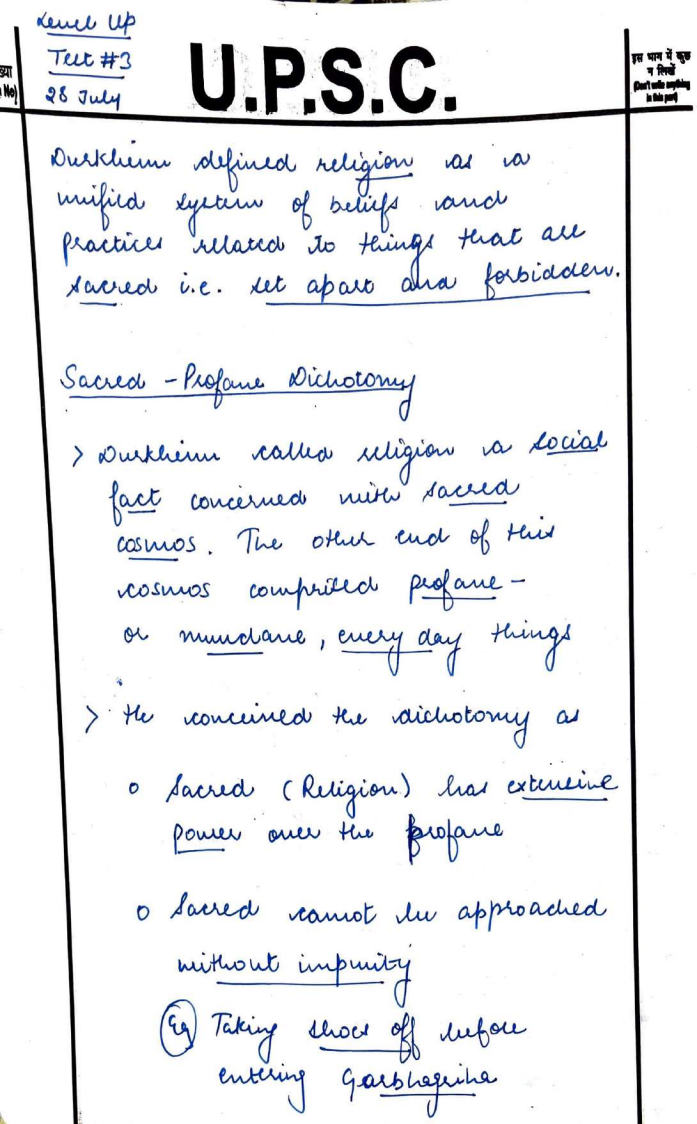 Level Up
Test #3
28 July
U.P.S.C.
इस भाग में कुछ
न लिखें
(Don't write anything
in this part)
No)
Durkheim defined religion as a
unified system of beliefs and
practices related to things that are
sacred i.e. set apart and forbidden.
Sacred - Profane Dichotomy
> Durkheim called religion a social
fact concerned with sacred
cosmos. The other end of this
cosmos comprised profane -
or mundane, every day things
> He conceived the dichotomy as
o Sacred (Religion) has extensive
power over the profane
o Sacred cannot be approached
without impunity
Eg Taking shoes off before
entering Garbhagriha